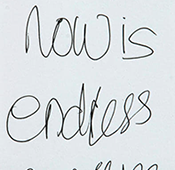 Now is
endless